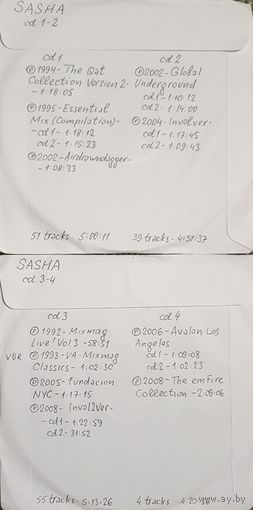 SASHA
cd 1-2
cd1
℗1994- The Qat
Collection Version 2-
-1:18:05
℗1995- Essential
Mix (Compilation)-
-cd1 - 1:18:12
cd2 - 1:15:23
℗2002- Airdrawndagger-
-1:08:33
51 tracks - 5:00:11
cd 2
℗2002- Global
Underground
cd1 - 1:10:12
cd2 - 1:14:00
℗2004- Involver-
cd1 - 1:17:45
cd2 - 1:09:43
39 tracks - 4:51:37
SASHA
cd 3-4
cd3
℗1992- Mixmag
Live! Vol 3 - 58:51
VBR ℗1993-VA- Mixmag
Classics - 1:02:30
℗2005- Fundacion
NYC - 1:17:15
℗2008- Invol2ver-
-cd1 - 1:22:59
cd2 - 31:52
55 tracks - 5:13:26
cd4
℗2006- Avalon Los
Angeles
cd1 - 1:09:08
cd2 - 1:02:23
℗2008- The emFire
Collection - 2:09:06
4 tracks - 4:20:38
www.ay.by